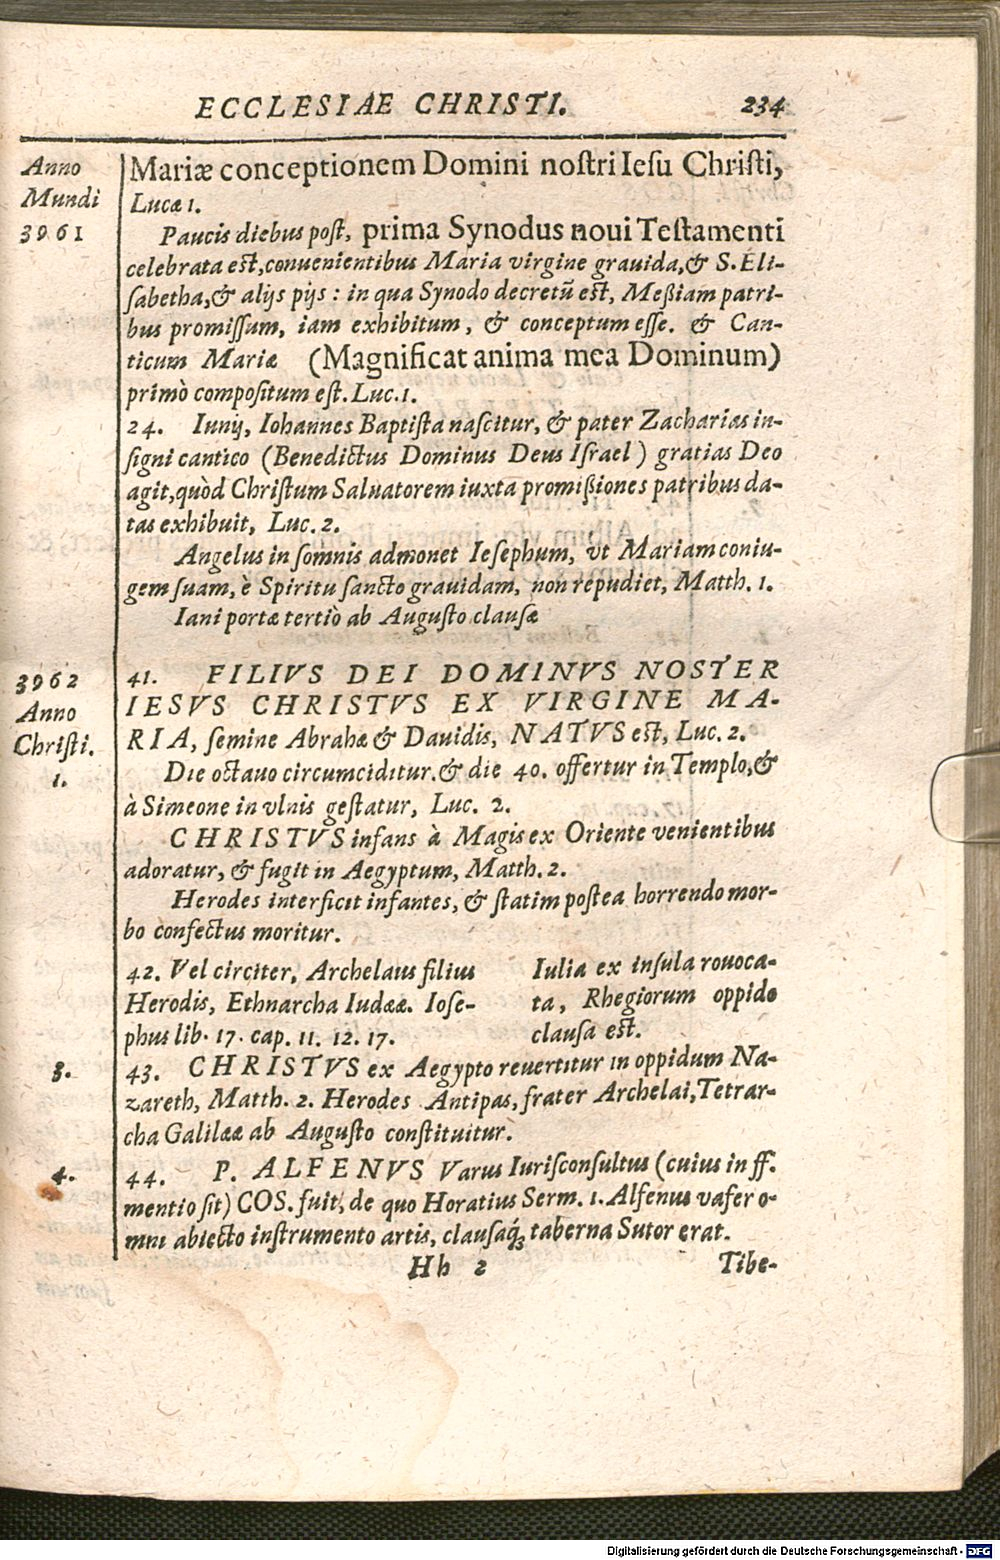 ECCLESIAE CHRISTI. 234
Anno
Mundi
3961
Mariæ conceptionem Domini nostri Iesu Christi,
Lucæ 1.
Paucis diebus post, prima Synodus noui Testamenti
celebrata est, conuenientibus Maria virgine grauida, & S. Eli-
sabetha, & alijs pijs : in qua Synodo decretũ est, Meßiam patri-
bus promissum, iam exhibitum, & conceptum esse. & Can-
ticum Mariæ (Magnificat anima mea Dominum)
primò compositum est. Luc. 1.
24. Iunij, Iohannes Baptista nascitur, & pater Zacharias in-
signi cantico (Benedictus Dominus Deus Israel) gratias Deo
agit, quòd Christum Saluatorem iuxta promißiones patribus da-
tas exhibuit, Luc. 2.
Angelus in somnis admonet Iesephum, vt Mariam coniu-
gem suam, è Spiritu sancto grauidam, non repudiet, Matth. 1.
Iani portæ tertiò ab Augusto clausæ
3962
Anno
Christi.
1.
41. FILIVS DEI DOMINVS NOSTER
IESVS CHRISTVS EX VIRGINE MA-
RIA, semine Abrahæ & Dauidis, NATVS est, Luc. 2.
Die octauo circumciditur. & die 40. offertur in Templo, &
à Simeone in vlnis gestatur, Luc. 2.
CHRISTVS infans à Magis ex Oriente venientibus
adoratur, & fugit in Aegyptum, Matth. 2.
Herodes interficit infantes, & statim postea horrendo mor-
bo confectus moritur.
42. Vel circiter, Archelaus filius
Herodis, Ethnarcha Iudææ. Iose-
phus lib. 17. cap. 11. 12. 17.
Iulia ex insula rouoca-
ta, Rhegiorum oppido
clausa est.
3.
43. CHRISTVS ex Aegypto reuertitur in oppidum Na-
zareth, Matth. 2. Herodes Antipas, frater Archelai, Tetrar-
cha Galilææ ab Augusto constituitur.
4.
44. P. ALFENVS Varus Iurisconsultus (cuius in ff.
mentio sit) COS. fuit, de quo Horatius Serm. 1. Alfenus vafer o-
mni abiecto instrumento artis, clausaq́ꝫ taberna Sutor erat.
Hh 2 Tibe-
Digitalisierung gefördert durch die Deutsche Forschungsgemeinschaft - DFG